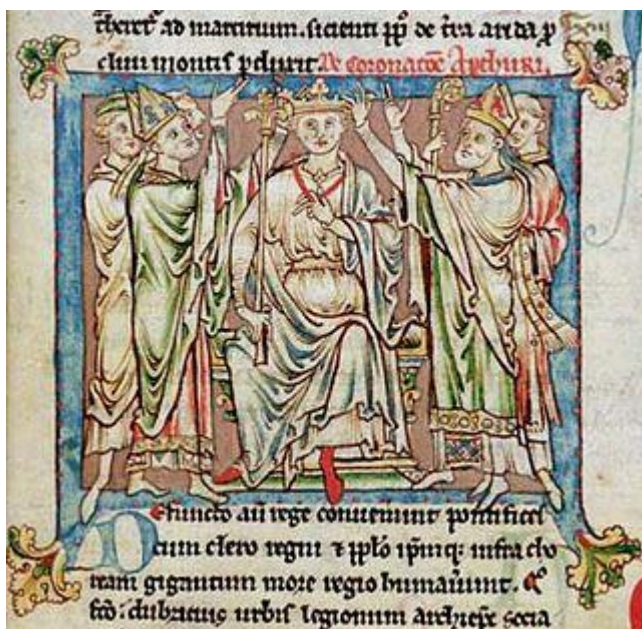 cheret ad martirium. sicienti pp̄o de t̄ra arida p
cliui montis pduxit De coronac̄oe Arthuri.
Defuncto aū rege conueniunt pontifices
cum clero regni ⁊ pp̄lo ip̄mq; infra cho
ream gigantum more regio humauı̄unt. Q̊
fc̄o: dubricius urbis legionum archiep̄c socia